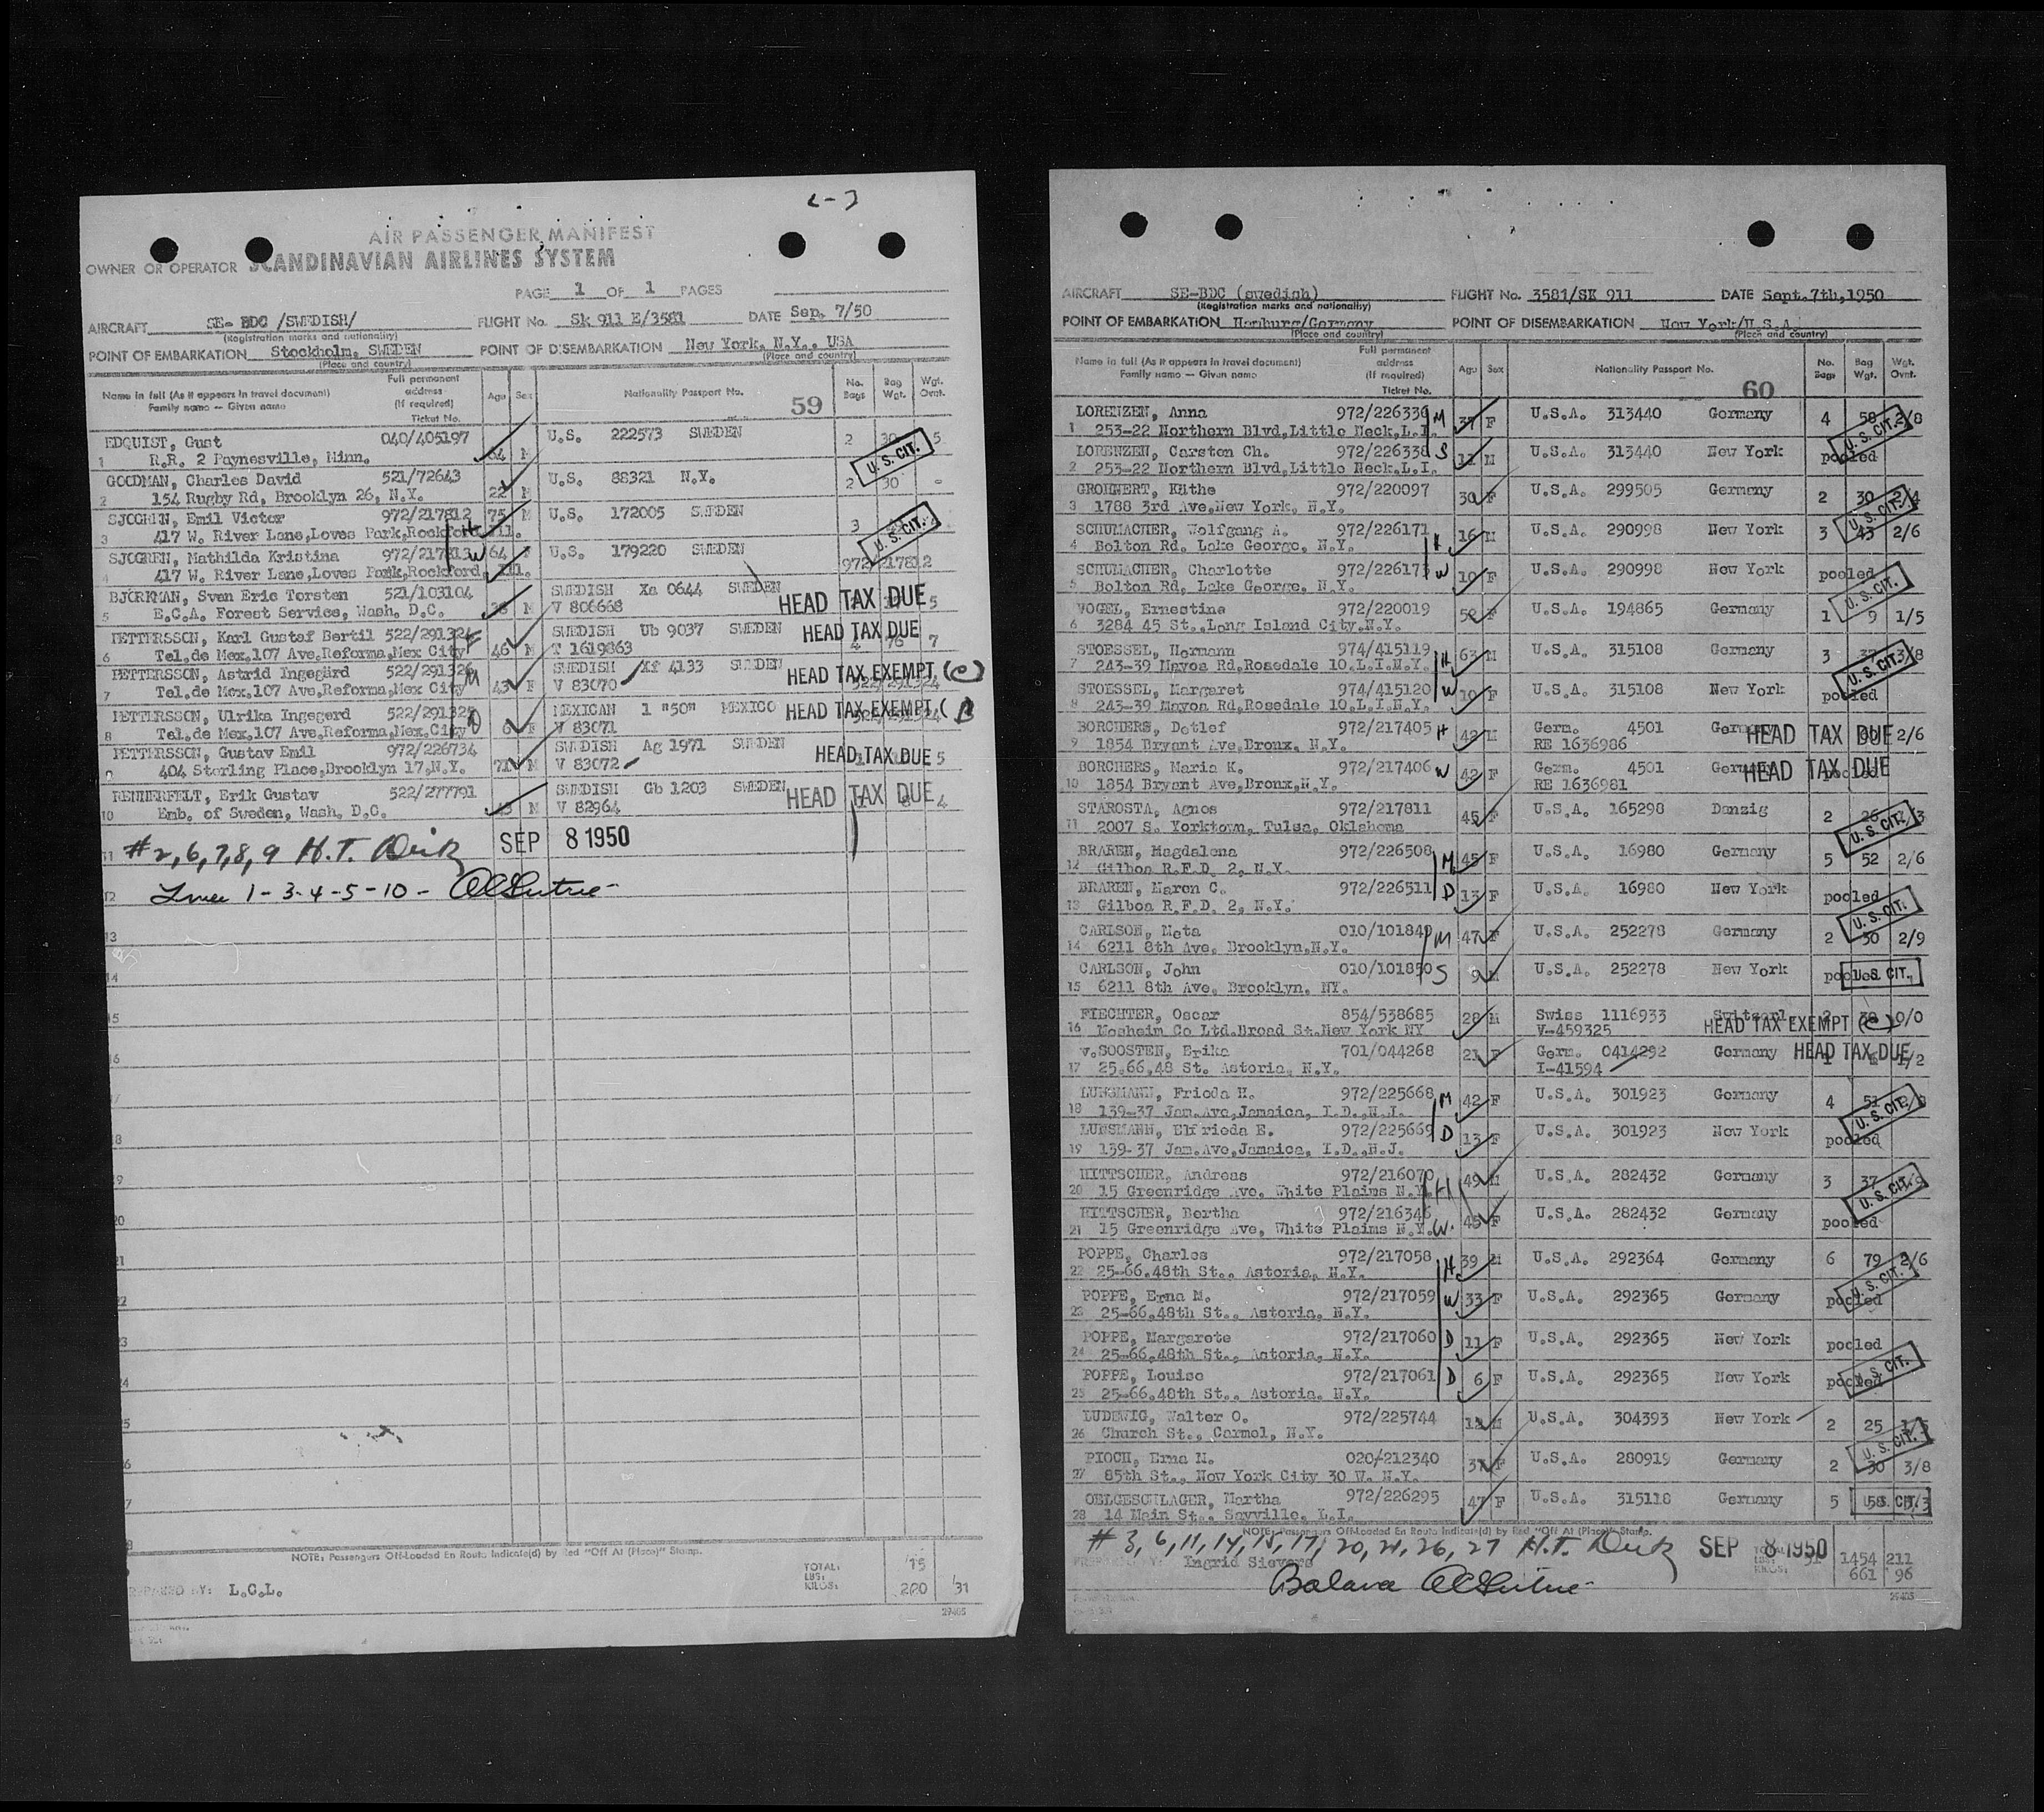 AIR PASSENGER MANIFEST
OWNER OR OPERATOR SCANDINAVIAN AIRLINES SYSTEM
PAGE 1 OF 1 PAGES
AIRCRAFT SE- BDC /SWEDISH/ FLIGHT No. Sk 911 E/3581 DATE Sep. 7/50
(Registration marks and nationality)
POINT OF EMBARKATION Stockholm, SWEDEN POINT OF DISEMBARKATION New York, N.Y., USA
(Place and country) (Place and country)
Name in full (As it appears in travel document) Family name — Given name Full permanent address (If required) Ticket No. Age Sex Nationality Passport No. 59 No. Bags Bag Wgt. Wgt. Ovnt.
EDQUIST, Gust 040/405197 U.S. 222573 SWEDEN 2 30 5
1 R.R. 2 Paynesville, Minn. 64 M U.S. CIT.
GOODMAN, Charles David 521/72643 U.S. 88321 N.Y. 2 30 -
2 154 Rugby Rd, Brooklyn 26, N.Y. 22 M
SJOGREN, Emil Victor 972/217812 75 M U.S. 172005 SWEDEN 3
3 417 W. River Lane, Loves Park, Rockford, Ill. H U.S. CIT.
SJOGREN, Mathilda Kristina 972/217813 W 64 F U.S. 179220 SWEDEN 972/217812
4 417 W. River Lane, Loves Park, Rockford, Ill.
BJORKMAN, Sven Eric Torsten 521/103104 SWEDISH Xa 0644 SWEDEN HEAD TAX DUE 5
5 E.C.A. Forest Service, Wash, D.C. 38 M V 806668
PETTERSSON, Karl Gustaf Bertil 522/291324 F SWEDISH Ub 9037 SWEDEN HEAD TAX DUE
6 Tel.de Mex.107 Ave,Reforma,Mex City 46 M T 1619863 4 76 7
PETTERSSON, Astrid Ingegärd 522/291326 M SWEDISH Xf 4133 SWEDEN HEAD TAX EXEMPT (C)
7 Tel.de Mex,107 Ave,Reforma,Mex City 43 F V 83070 522/291324
PETTERSSON, Ulrika Ingegerd 522/291325 D MEXICAN 1 "50" MEXICO HEAD TAX EXEMPT ( B
8 Tel.de Mex,107 Ave,Reforma,Mex.City 6 F V 83071
PETTERSSON, Gustav Emil 972/226734 SWEDISH Ag 1971 SWEDEN HEAD TAX DUE 5
9 404 Sterling Place,Brooklyn 17,N.Y. 71 M V 83072
RENNERFELT, Erik Gustav 522/277791 SWEDISH Gb 1203 SWEDEN HEAD TAX DUE 4
10 Emb. of Sweden, Wash, D.C. 43 M V 82964
11 #2,6,7,8,9 H.T. SEP 8 1950
12 Lines 1-3-4-5-10-
13
14
15
16
17
18
19
20
21
22
23
24
25
26
27
28
NOTE: Passengers Off-Loaded En Route Indicate(d) by Red "Off At (Place)" Stamp.
PREPARED BY: L.C.L. TOTAL: LBS: KILOS: 15 220 31
29405
AIRCRAFT SE-BDC (swedish) FLIGHT No. 3581/SK 911 DATE Sept.7th,1950
(Registration marks and nationality)
POINT OF EMBARKATION Hamburg/Germany POINT OF DISEMBARKATION New York/U.S.A.
(Place and country) (Place and country)
Name in full (As it appears in travel document) Family name — Given name Full permanent address (If required) Ticket No. Age Sex Nationality Passport No. 60 No. Bags Bag Wgt. Wgt. Ovnt.
LORENZEN, Anna 972/226336 M 37 F U.S.A. 313440 Germany 4 58 2/8
1 253-22 Northern Blvd,Little Neck,L.I. U.S. CIT.
LORENZEN, Carsten Ch. 972/226338 S 11 M U.S.A. 313440 New York pooled
2 253-22 Northern Blvd,Little Neck,L.I.
GROHWERT, Käthe 972/220097 30 F U.S.A. 299505 Germany 2 30 2/4
3 1788 3rd Ave,New York, N.Y. U.S. CIT.
SCHUMACHER, Wolfgang A. 972/226171 16 M U.S.A. 290998 New York 3 43 2/6
4 Bolton Rd. Lake George, N.Y. H
SCHUMACHER, Charlotte 972/226173 W 10 F U.S.A. 290998 New York pooled
5 Bolton Rd, Lake George, N.Y. U.S. CIT.
VOGEL, Ernestina 972/220019 58 F U.S.A. 194865 Germany 1 9 1/5
6 3284 45 St.,Long Island City,N.Y.
STOESSEL, Hermann 974/415119 H 63 M U.S.A. 315108 Germany 3 37 3/8
7 243-39 Mayoa Rd,Rosedale 10.L.I.N.Y. U.S. CIT.
STOESSEL, Margaret 974/415120 W 10 F U.S.A. 315108 New York pooled
8 243-39 Mayoa Rd,Rosedale 10.L.I.N.Y.
BORCHERS, Detlef 972/217405 H 42 M Germ. 4501 Germany HEAD TAX DUE 2/6
9 1854 Bryant Ave,Bronx, N.Y. RE 1636986
BORCHERS, Maria K. 972/217406 W 42 F Germ. 4501 Germany HEAD TAX DUE
10 1854 Bryant Ave,Bronx,N.Y. RE 1636981
STAROSTA, Agnes 972/217811 45 F U.S.A. 165298 Danzig 2 26 3
11 2007 S. Yorktown, Tulsa, Oklahoma U.S. CIT.
BRAREN, Magdalena 972/226508 M 45 F U.S.A. 16980 Germany 5 52 2/6
12 Gilboa R.F.D. 2, N.Y.
BRAREN, Maron C. 972/226511 D 13 F U.S.A. 16980 New York pooled
13 Gilboa R.F.D. 2, N.Y. U.S. CIT.
CARLSON, Meta 010/101849 M 47 F U.S.A. 252278 Germany 2 30 2/9
14 6211 8th Ave, Brooklyn,N.Y.
CARLSON, John 010/101850 S 9 M U.S.A. 252278 New York pooled U.S. CIT.
15 6211 8th Ave, Brooklyn, NY.
FIECHTER, Oscar 854/538685 28 M Swiss 1116933 Switzerl. 2 38 0/0
16 Mosheim Co Ltd.Broad St.New York NY V-459325 HEAD TAX EXEMPT (C)
v.SOOSTEN, Erika 701/044268 21 F Germ. 0414292 Germany HEAD TAX DUE 1/2
17 25.66,48 St. Astoria, N.Y. I-41594
LUNSMANN, Frieda H. 972/225668 M 42 F U.S.A. 301923 Germany 4 51
18 139-37 Jam.Ave,Jamaica, I.D.,N.J. U.S. CIT.
LUNSMANN, Elfrieda E. 972/225669 D 13 F U.S.A. 301923 New York pooled
19 139-37 Jam.Ave,Jamaica, I.D.,N.J.
HITTSCHER, Andreas 972/216070 49 M U.S.A. 282432 Germany 3 37
20 15 Greenridge Ave, White Plains N.Y. H U.S. CIT.
HITTSCHER, Bertha 972/216346 45 F U.S.A. 282432 Germany pooled
21 15 Greenridge Ave, White Plains N.Y. W.
POPPE, Charles 972/217058 H 39 M U.S.A. 292364 Germany 6 79 2/6
22 25-66,48th St., Astoria, N.Y. U.S. CIT.
POPPE, Erna M. 972/217059 W 33 F U.S.A. 292365 Germany pooled
23 25-66,48th St., Astoria, N.Y.
POPPE, Margarete 972/217060 D 11 F U.S.A. 292365 New York pooled
24 25-66,48th St., Astoria, N.Y.
POPPE, Louise 972/217061 D 6 F U.S.A. 292365 New York pooled U.S. CIT.
25 25-66,48th St., Astoria, N.Y.
LUDEWIG, Walter O. 972/225744 12 M U.S.A. 304393 New York 2 25
26 Church St., Carmel, N.Y. U.S. CIT.
PIOCH, Erna N. 020/212340 37 F U.S.A. 280919 Germany 2 30 3/8
27 85th St., New York City 30 W. N.Y.
OELGESCHLAGER, Martha 972/226295 47 F U.S.A. 315118 Germany 5 58 U.S. CIT.
28 14 Main St., Sayville, L.I.
NOTE: Passengers Off-Loaded En Route Indicate(d) by Red "Off At (Place)" Stamp.
# 3, 6, 11, 14, 15, 17, 20, 21, 26, 27 H.T. SEP 8 1950
PREPARED BY: Ingrid Sievers KILOS: 1454 211 661 96
Balance
29405